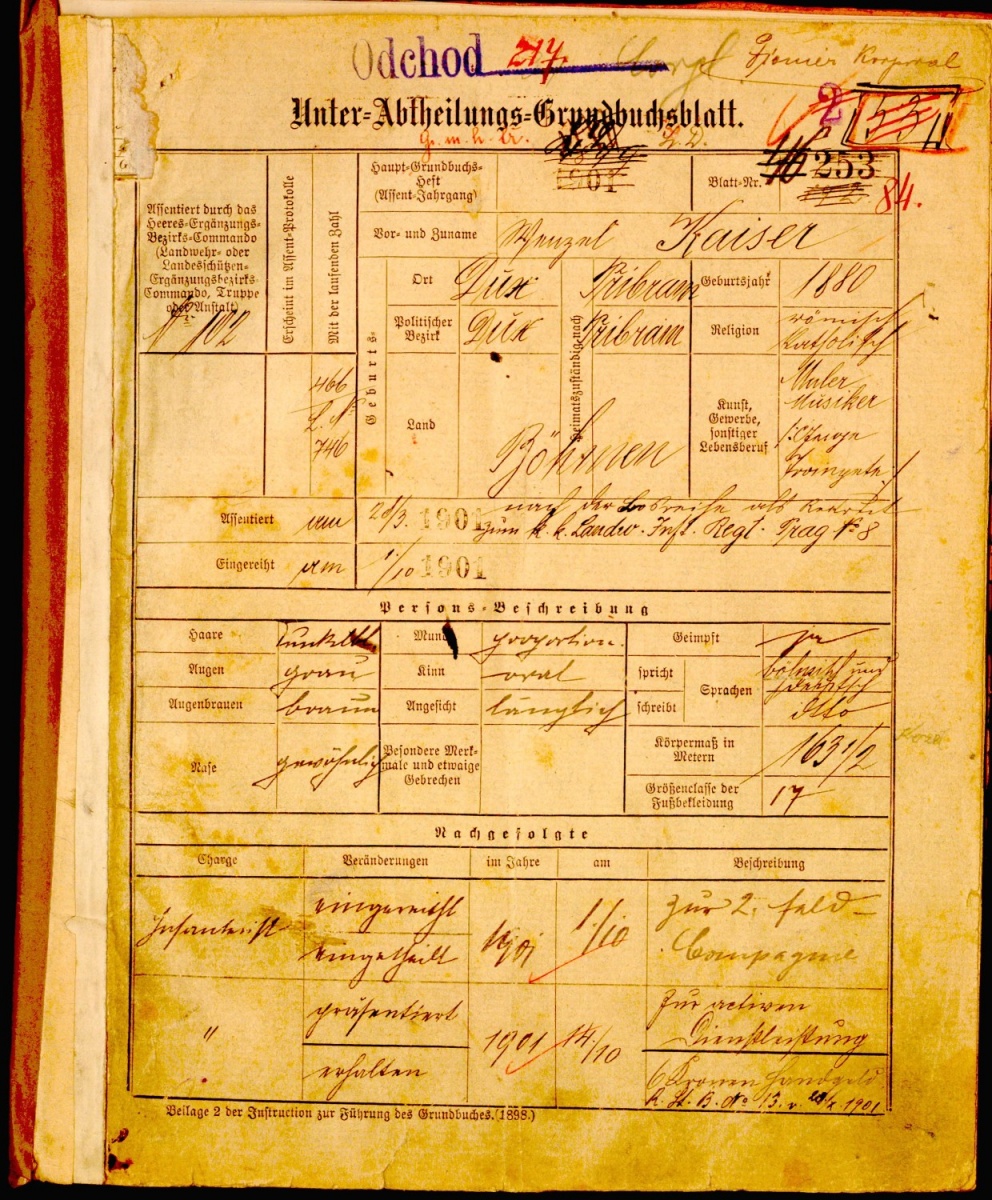 Odchod 217.
Pionier Korporal
Unter-Abtheilungs-Grundbuchsblatt.
2
G. m. h. L. D.
Assentiert durch das
Heeres-Ergänzungs-
Bezirks-Commando
(Landwehr- oder
Landesschützen-
Ergänzungsbezirks-
Commando, Truppe
oder Anstalt)
102
Erscheint im Assent-Protokolle
Mit der laufenden Zahl
466
L. No
746
Haupt-Grundbuchs-
Heft
(Assent-Jahrgang)
1901
Blatt-Nr. 116 253
84.
Vor- und Zuname Wenzel Kaiser
Geburts-
Ort Dux
Heimatszuständig nach
Pribram
Geburtsjahr 1880
Politischer
Bezirk
Dux
Pribram
Religion
römisch
katholisch
Land Böhmen
Kunst,
Gewerbe,
sonstiger
Lebensberuf
Maler
Musiker
Trompete
Assentiert am 28/3. 1901 nach der Losreihe als Rekrut
zum k. k. Landw. Inft. Regt. Prag No 8
Eingereiht am 1/10 1901
Persons-Beschreibung
Haare
Mund proportion.
Geimpft ja
Augen grau
Kinn oval
spricht
schreibt
Sprachen
böhmisch und
deutsch
dtto
Augenbrauen braun
Angesicht länglich
Nase gewöhnlich
Besondere Merk-
male und etwaige
Gebrechen
Körpermaß in
Metern
163 1/2
Größenclasse der
Fußbekleidung
17
Nachgefolgte
Charge Veränderungen im Jahre am Beschreibung
Infanterist
eingereiht
eingetheilt
1901 1/10
zur 2. Feld-
Compagnie
"
präsentiert
erhalten
1901 14/10
zur activen
Dienstleistung
6 Kronen Handgeld
R. H. B. No 13. v. 1901
Beilage 2 der Instruction zur Führung des Grundbuches. (1898.)